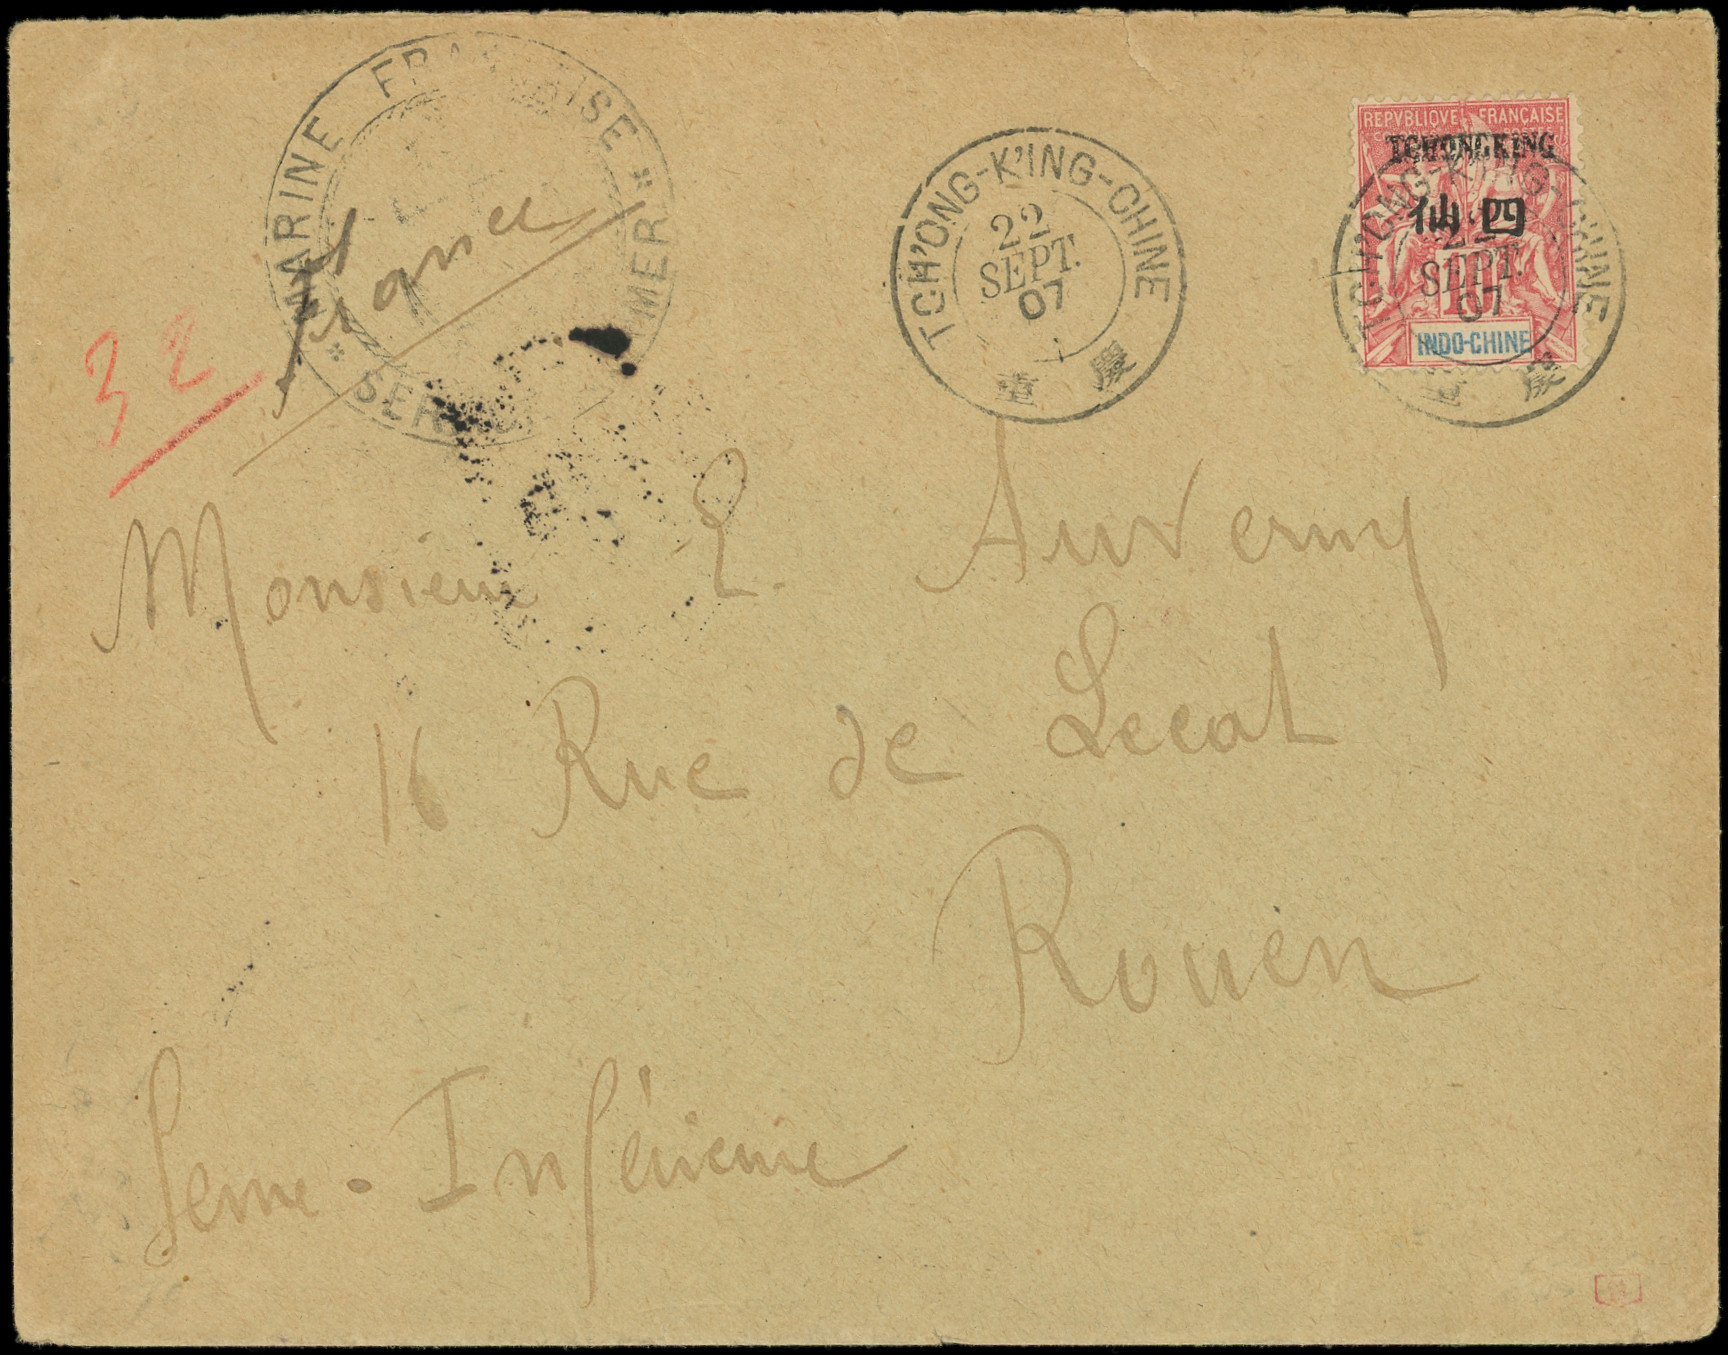 MARINE FRANÇAISE * MER *
France
32
TCH'ONG-K'ING-CHINE
22
SEPT.
07
重 慶
REPVBLIQVE FRANÇAISE
TCHONGKING
仙 四
10
INDO-CHINE
TCH'ONG-K'ING-CHINE
22
SEPT.
07
重 慶
Monsieur E. Auverny
16 Rue de Lecat
Rouen
Seine-Inférieure